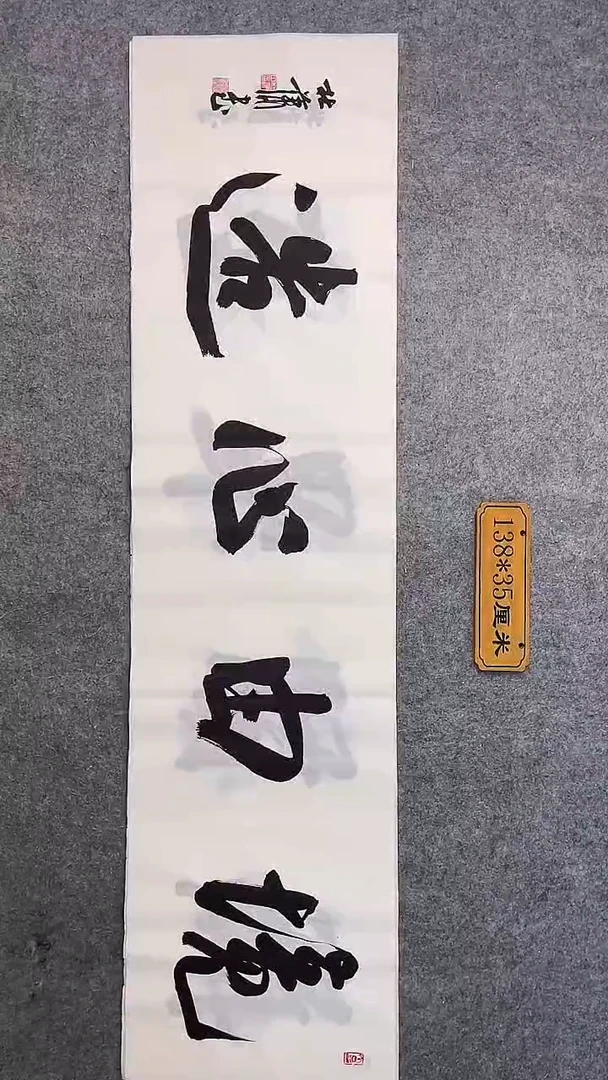 境由心造
138*35厘米